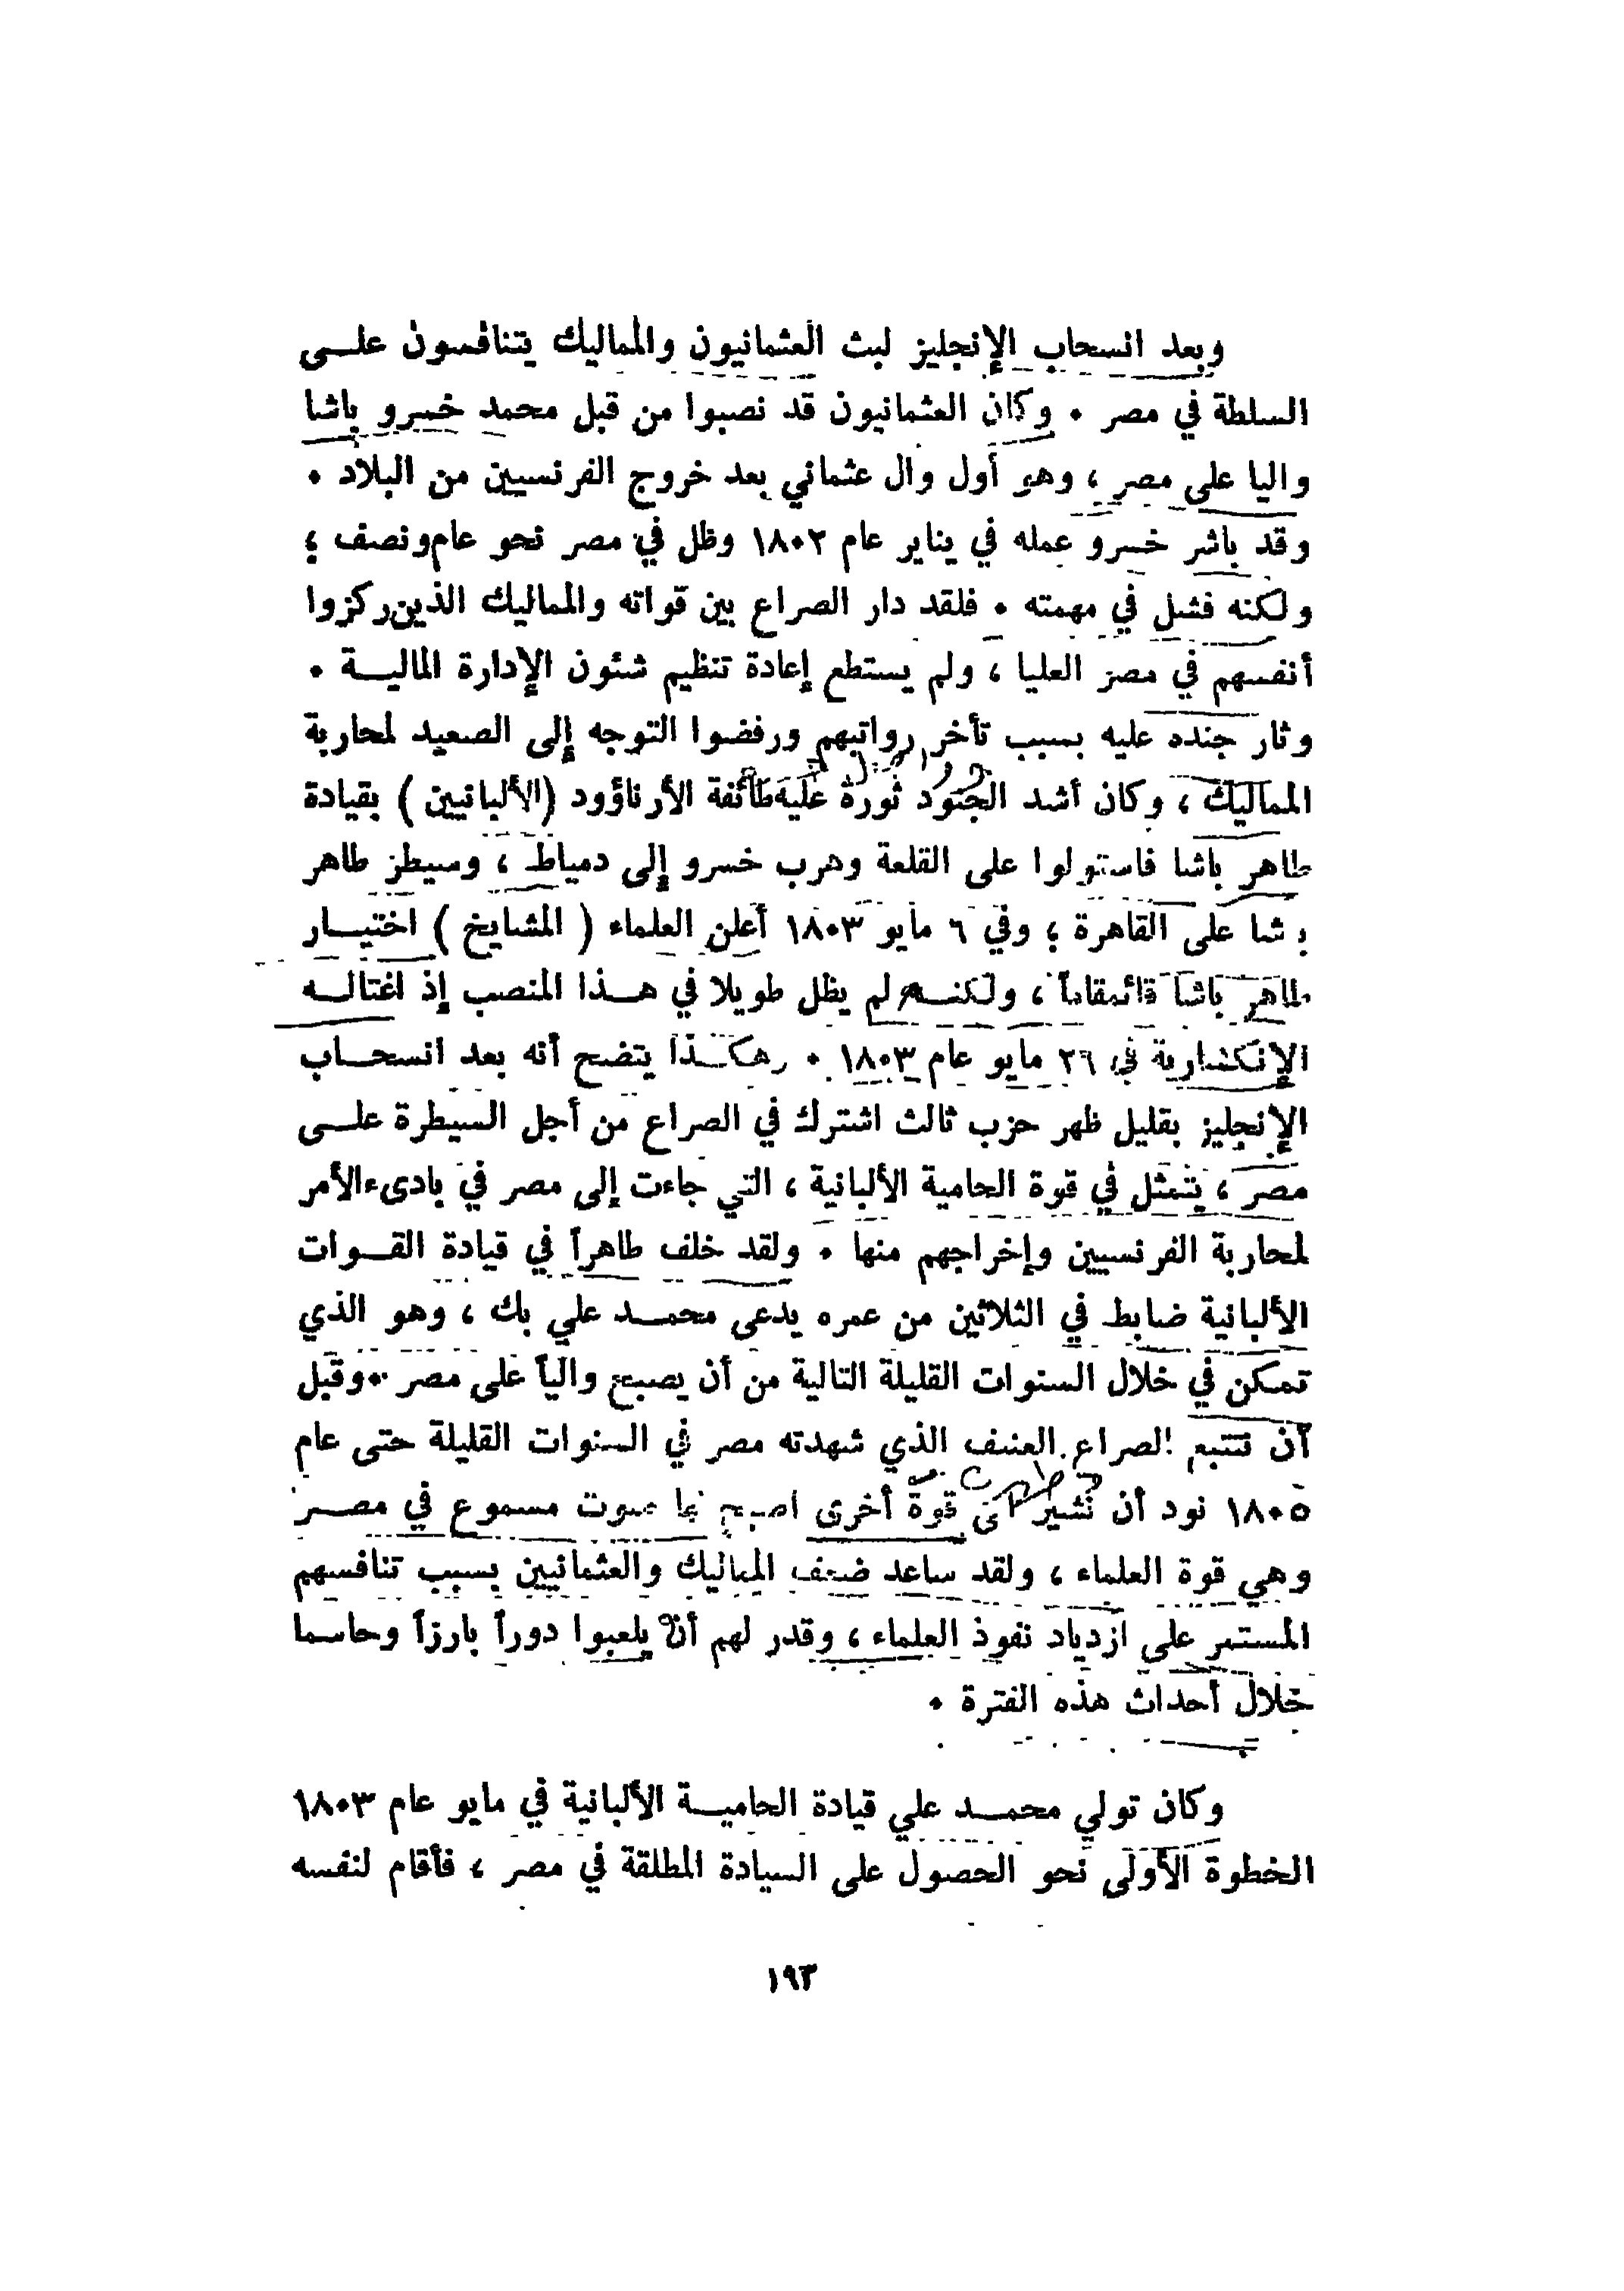 وبعد انسحاب الإنجليز لبث العثمانيون والمماليك يتنافسون علـــى
السلطة في مصر . وكان العثمانيون قد نصبوا من قبل محمد خسرو باشا
واليا على مصر ، وهو أول وال عثماني بعد خروج الفرنسيين من البلاد .
وقد باشر خسرو عمله في يناير عام ١٨٠٢ وظل في مصر نحو عام ونصف ؛
ولكنه فشل في مهمته . فلقد دار الصراع بين قواته والمماليك الذين ركزوا
أنفسهم في مصر العليا ، ولم يستطع إعادة تنظيم شئون الإدارة الماليــة .
وثار جنده عليه بسبب تأخر رواتبهم ورفضوا التوجه إلى الصعيد لمحاربة
المماليك ، وكان أشد الجنود ثورة عليه طائفة الأرناؤود (الألبانيين ) بقيادة
طاهر باشا فاستولوا على القلعة وهرب خسرو إلى دمياط ، وسيطر طاهر
باشا على القاهرة ؛ وفي ٦ مايو ١٨٠٣ أعلن العلماء ( المشايخ ) اختيــار
طاهر باشا قائمقاماً ، ولكنــه لم يظل طويلا في هــذا المنصب إذ اغتالــه
الإنكشارية في ٢٦ مايو عام ١٨٠٣ . وهكــذا يتضح أنه بعد انسحــاب
الإنجليز بقليل ظهر حزب ثالث اشترك في الصراع من أجل السيطرة علــى
مصر ، يتمثل في قوة الحامية الألبانية ، التي جاءت إلى مصر في بادىء الأمر
لمحاربة الفرنسيين وإخراجهم منها . ولقد خلف طاهراً في قيادة القــوات
الألبانية ضابط في الثلاثين من عمره يدعى محمــد علي بك ، وهو الذي
تمكن في خلال السنوات القليلة التالية من أن يصبح والياً على مصر .. وقبل
أن نتتبع الصراع العنيف الذي شهدته مصر في السنوات القليلة حتى عام
١٨٠٥ نود أن نشير إلى قوة أخرى أصبح لها صوت مسموع في مصــر
وهي قوة العلماء ، ولقد ساعد ضعف المماليك والعثمانيين بسبب تنافسهم
المستمر على ازدياد نفوذ العلماء ، وقدر لهم أن يلعبوا دوراً بارزاً وحاسما
خلال أحداث هذه الفترة .
وكان تولي محمــد علي قيادة الحاميــة الألبانية في مايو عام ١٨٠٣
الخطوة الأولى نحو الحصول على السيادة المطلقة في مصر ، فأقام لنفسه
١٩٣